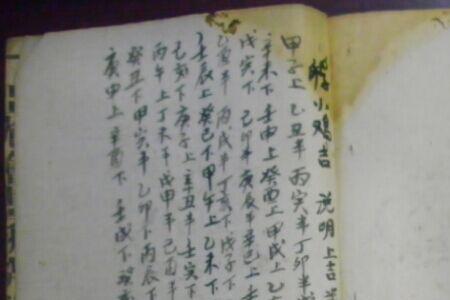 小鸡吉 说明上吉半
甲子上 乙丑半 丙寅半 丁卯半 戊
辛未下 壬申上 癸酉上 甲戌上 乙
戊寅下 己卯半 庚辰半 辛巳上
乙酉半 丙戌半 丁亥下 戊子下
壬辰上 癸巳下 甲午上 乙未下
己亥下 庚子上 辛丑半 壬寅下
丙午上 丁未半 戊申半 己酉半
癸丑下 甲寅半 乙卯下 丙辰下
庚申上 辛酉下 壬戌下 癸亥